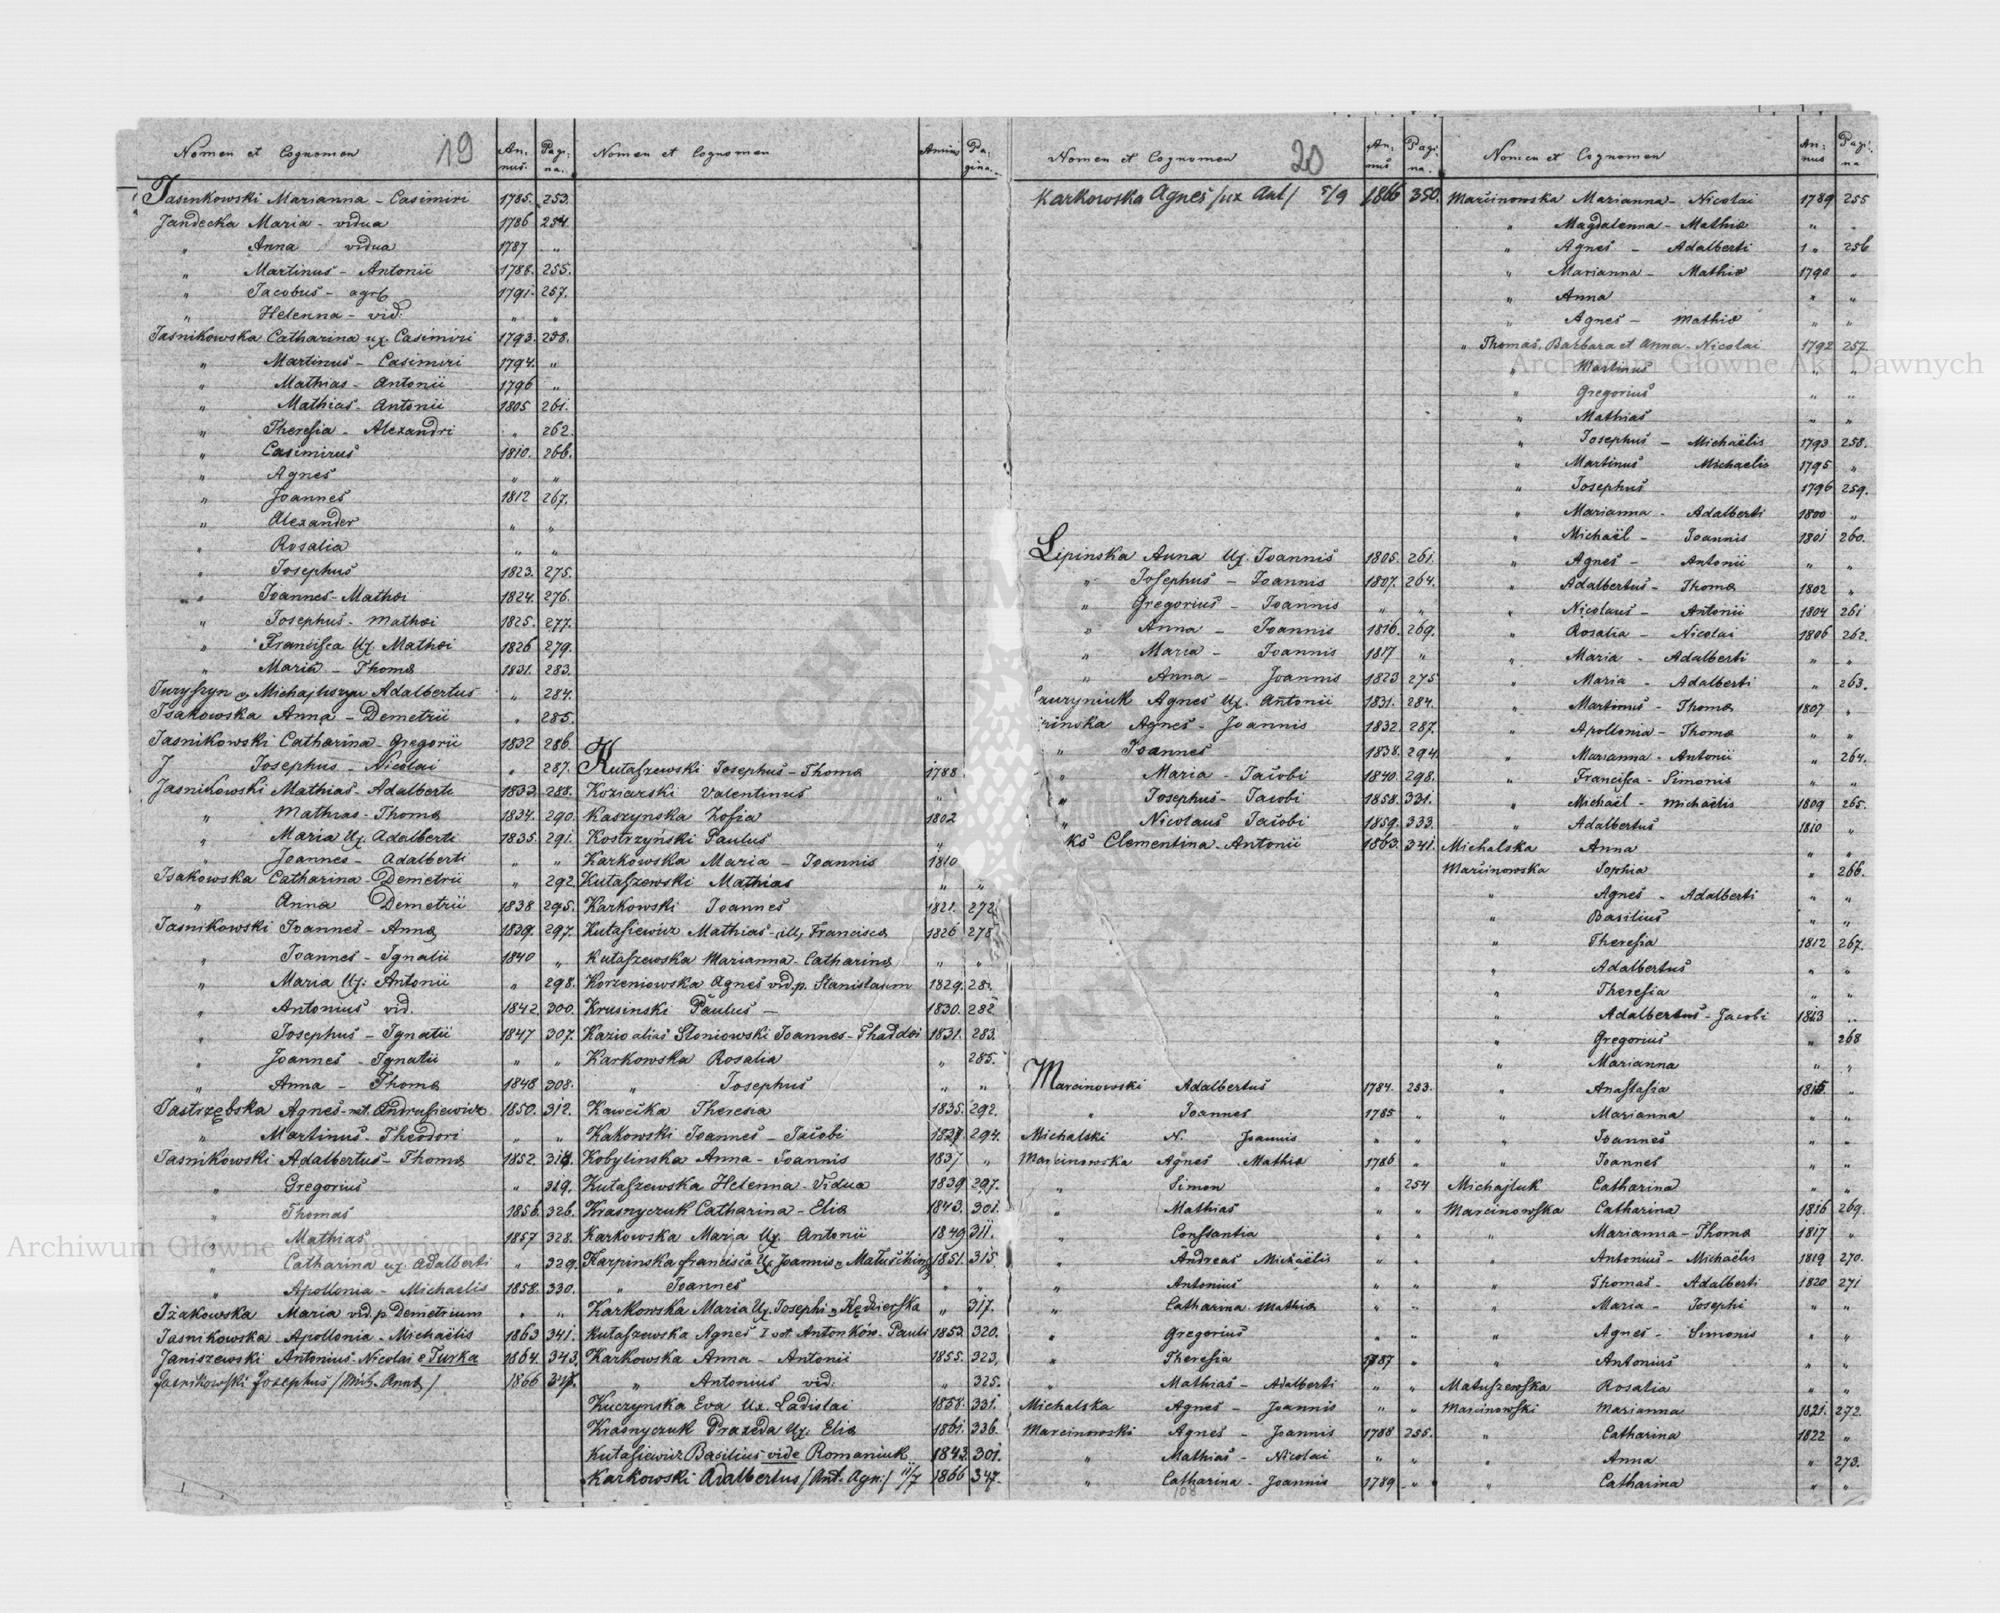 19
Nomen et Cognomen Annus. Pagina.
Jasinkowski Marianna - Casimiri 1785. 253.
Jandecka Maria - vidua 1786 254.
" Anna vidua 1787 "
" Martinus - Antonii 1788. 255.
" Jacobus - 1791. 257.
" Helenna - vid: " "
Jasnikowska Catharina ux. Casimiri 1793. 258.
" Martinus - Casimiri 1794. "
" Mathias - Antonii 1796 "
" Mathias - Antonii 1805 261.
" Theresia - Alexandri " 262.
" Casimirus 1810. 266.
" Agnes " "
" Joannes 1812 267.
" Alexander " "
" Rosalia " "
" Josephus 1823. 275.
" Joannes - Mathæi 1824. 276.
" Josephus - Mathæi 1825. 277.
" Francisca Ux. Mathæi 1826 279.
" Maria - Thomæ 1831. 283.
Juryszyn v. Michajliszyn Adalbertus " 284.
Isakowska Anna - Demetrii " 285.
Jasnikowski Catharina - Gregorii 1832 286.
J Josephus - Nicolai " 287.
Jasnikowski Mathias - Adalberti 1833. 288.
" Mathias - Thomæ 1834. 290.
" Maria Ux. Adalberti 1835. 291.
" Joannes - Adalberti " "
Isakowska Catharina Demetrii " 292.
" Anna Demetrii 1838 295.
Jasnikowski Joannes - Annæ 1839. 297.
" Joannes - Ignatii 1840 "
" Maria Ux: Antonii " 298.
" Antonius vid. 1842 300.
" Josephus - Ignatii 1847 307.
" Joannes - Ignatii " "
" Anna - Thomæ 1848 308.
Jastrzębska Agnes - nat. Andrusiewicz 1850. 312.
" Martinus - Theodori " "
Jasnikowski Adalbertus - Thomæ 1852. 318.
" Gregorius " 319.
" Thomas 1856. 326.
" Mathias 1857 328.
" Catharina ux. Adalberti " 329.
" Apollonia - Michaelis 1858. 330.
Iżakowska Maria vid. p. Demetrium " "
Jasnikowska Apollonia - Michaëlis 1863 341.
Janiszewski Antonius - Nicolai e Turka 1864. 343.
Jasnikowski Josephus / Mich. Annæ / 1866
Nomen et Cognomen Annus Pagina.
Kutaszewski Josephus - Thomæ 1788
Koziarski Valentinus "
Kaszynska Zofia 1802
Kostrzyński Paulus "
Karkowska Maria - Joannis 1810
Kutaszewski Mathias " "
Karkowski Joannes 1821. 272.
Kutasiewicz Mathias - ill. Francisca 1826 278
Kutaszewska Marianna - Catharinæ " "
Korzeniowska Agnes vid. p. Stanislaum 1829. 28
Krusinski Paulus - 1830. 282
Kazio alias Słoniowski Joannes - Thaddæi 1831. 283.
Karkowska Rosalia " 285.
" Josephus " "
Kawecka Theresia 1835. 292.
Kakowski Joannes - Jacobi 1837 294.
Kobylinska Anna - Joannis 1837 "
Kutaszewska Helenna - Vidua 1839 297.
Krasnyczuk Catharina - Eliæ 1843. 301.
Karkowska Maria Ux. Antonii 1849 311.
Karpinska Francisca Ux. Joannis v. 1851. 315.
" Joannes " "
Karkowska Maria Ux. Josephi v. Kędzierska " 317.
Kutaszewska Agnes Antonków. Pauli 1853. 320.
Karkowska Anna - Antonii 1855. 323.
" Antonius vid: " 325.
Kuczynska Eva Ux. Ladislai 1858. 331.
Krasnyczuk Praxeda Ux. Eliæ 1861. 336.
Kutasiewicz Basilius vide Romaniuk 1843. 301.
Karkowski Adalbertus / Ant. Agn: / 11/7 1866 347.
20
Nomen et Cognomen Annus Pagina.
Karkowska Agnes / ux Ant / 5/9 1866 350.
Lipinska Anna Ux. Joannis 1805. 261.
" Josephus - Joannis 1807. 264.
" Gregorius - Joannis " "
" Anna - Joannis 1816. 269.
" Maria - Joannis 1817 "
" Anna - Joannis 1823 275
Agnes Ux. Antonii 1831. 284.
Agnes - Joannis 1832. 287.
" Joannes 1838. 294.
" Maria - Jacobi 1840. 298.
" Josephus - Jacobi 1858. 331.
" Nicolaus Jacobi 1859. 333.
Clementina - Antonii 1863. 341.
Marcinowski Adalbertus 1784. 253.
" Joannes 1785 "
Michalski N. Joannis " "
Marcinowska Agnes Mathiæ 1786 "
" Simon " 254
" Mathias " "
" Constantia " "
" Andreas Michaëlis " "
" Antonius " "
" Catharina Mathiæ " "
" Gregorius " "
" Theresia 1787 "
" Mathias - Adalberti " "
Michalska Agnes - Joannis " "
Marcinowski Agnes - Joannis 1788 255.
" Mathias - Nicolai " "
" Catharina - Joannis 1789 "
108
Nomen et Cognomen Annus Pagina
Marcinowska Marianna - Nicolai 1789 255
" Magdalenna - Mathiæ " "
" Agnes - Adalberti " 256
" Marianna - Mathiæ 1790 "
" Anna " "
" Agnes - Mathiæ " "
" Thomas, Barbara et Anna - Nicolai 1792 257
" Martinus " "
" Gregorius " "
" Mathias " "
" Josephus - Michaëlis 1793 258.
" Martinus Michaelis 1795 "
" Josephus 1796 259.
" Marianna - Adalberti 1800 "
" Michaël - Joannis 1801 260.
" Agnes - Antonii " "
" Adalbertus - Thomæ 1802 "
" Nicolaus - Antonii 1804 261
" Rosalia - Nicolai 1806 262.
" Maria - Adalberti " "
" Maria - Adalberti " 263.
" Martinus - Thomæ 1807 "
" Apollonia - Thomæ " "
" Marianna - Antonii " 264.
" Francisca - Simonis " "
" Michaël - Michaëlis 1809 265.
" Adalbertus 1810 "
Michalska Anna " "
Marcinowska Sophia " 266.
" Agnes - Adalberti " "
" Basilius " "
" Theresia 1812 267.
" Adalbertus " "
" Theresia " "
" Adalbertus - Jacobi 1813 "
" Gregorius " 268
" Marianna " "
" Anastasia 1815 "
" Marianna " "
" Joannes " "
" Joannes " "
Michajluk Catharina " "
Marcinowska Catharina 1816 269.
" Marianna - Thomæ 1817 "
" Antonius - Michaëlis 1819 270.
" Thomas - Adalberti 1820 271
" Maria - Josephi " "
" Agnes - Simonis " "
" Antonius " "
Matuszewska Rosalia " "
Marcinowski Marianna 1821. 272.
" Catharina 1822 "
" Anna " 273.
" Catharina " "
Archiwum Główne Akt Dawnych
Archiwum Główne Akt Dawnych